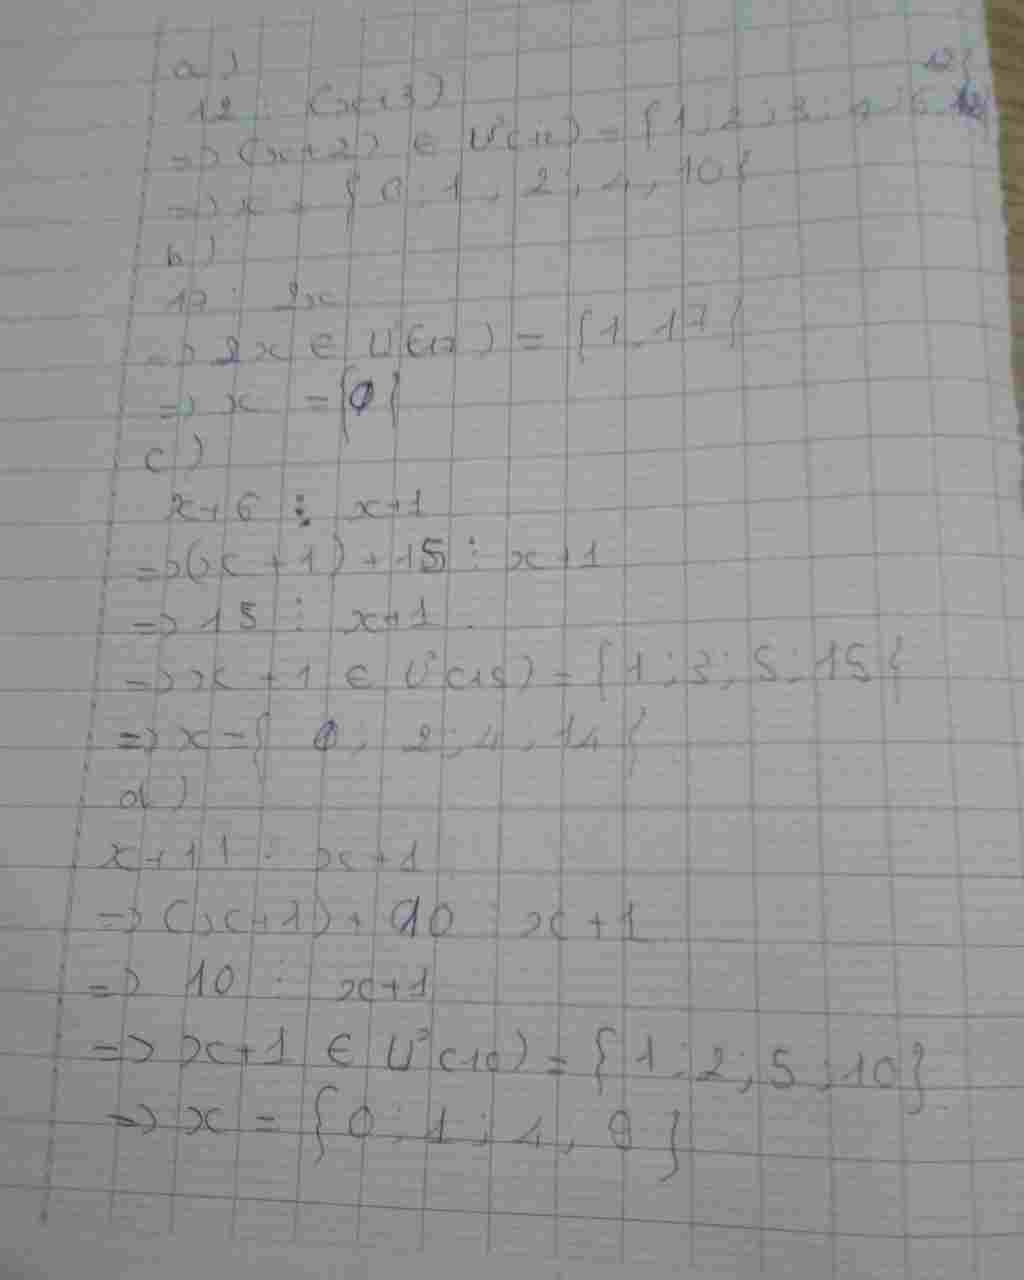 a)
12 ⋮ (x+3)
=> (x+2) ∈ Ư(12) = {1; 2; 3; 4; 6; 12}
=> x = {0; 1; 2; 4; 10}
b)
17 ⋮ 2x
=> 2x ∈ Ư(17) = {1; 17}
=> x = {0}
c)
x+6 ⋮ x+1
=> (x+1)+15 ⋮ x+1
=> 15 ⋮ x+1
=> x+1 ∈ Ư(15) = {1; 3; 5; 15}
=> x = {0; 2; 4; 14}
d)
x+11 ⋮ x+1
=> (x+1)+10 ⋮ x+1
=> 10 ⋮ x+1
=> x+1 ∈ Ư(10) = {1; 2; 5; 10}
=> x = {0; 1; 4; 9}